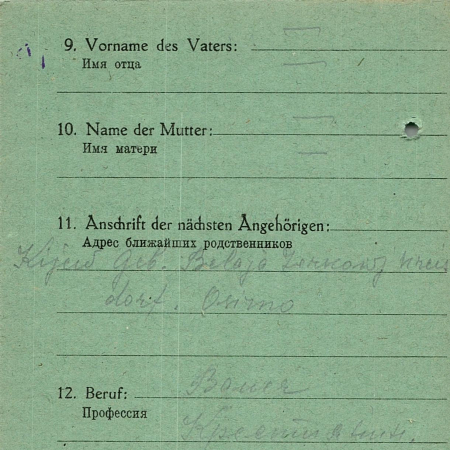 9. Vorname des Vaters:
Имя отца
10. Name der Mutter:
Имя матери
11. Anschrift der nächsten Angehörigen:
Адрес ближайших родственников
Kijew Geb. Belaja
dorf.
12. Beruf: Bauer
Профессия
Крестьянин.